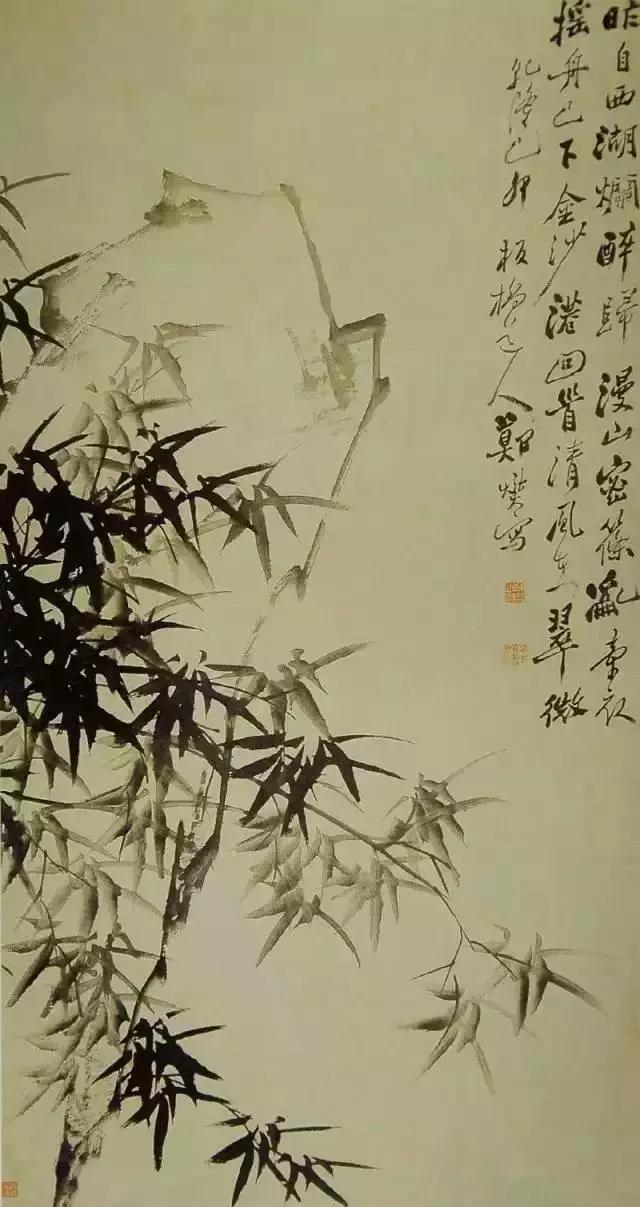 昨自西湖爛醉歸漫山密篠亂牽衣
搖舟已下金沙港回首清風在翠微
乾隆己卯板橋道人鄭燮写